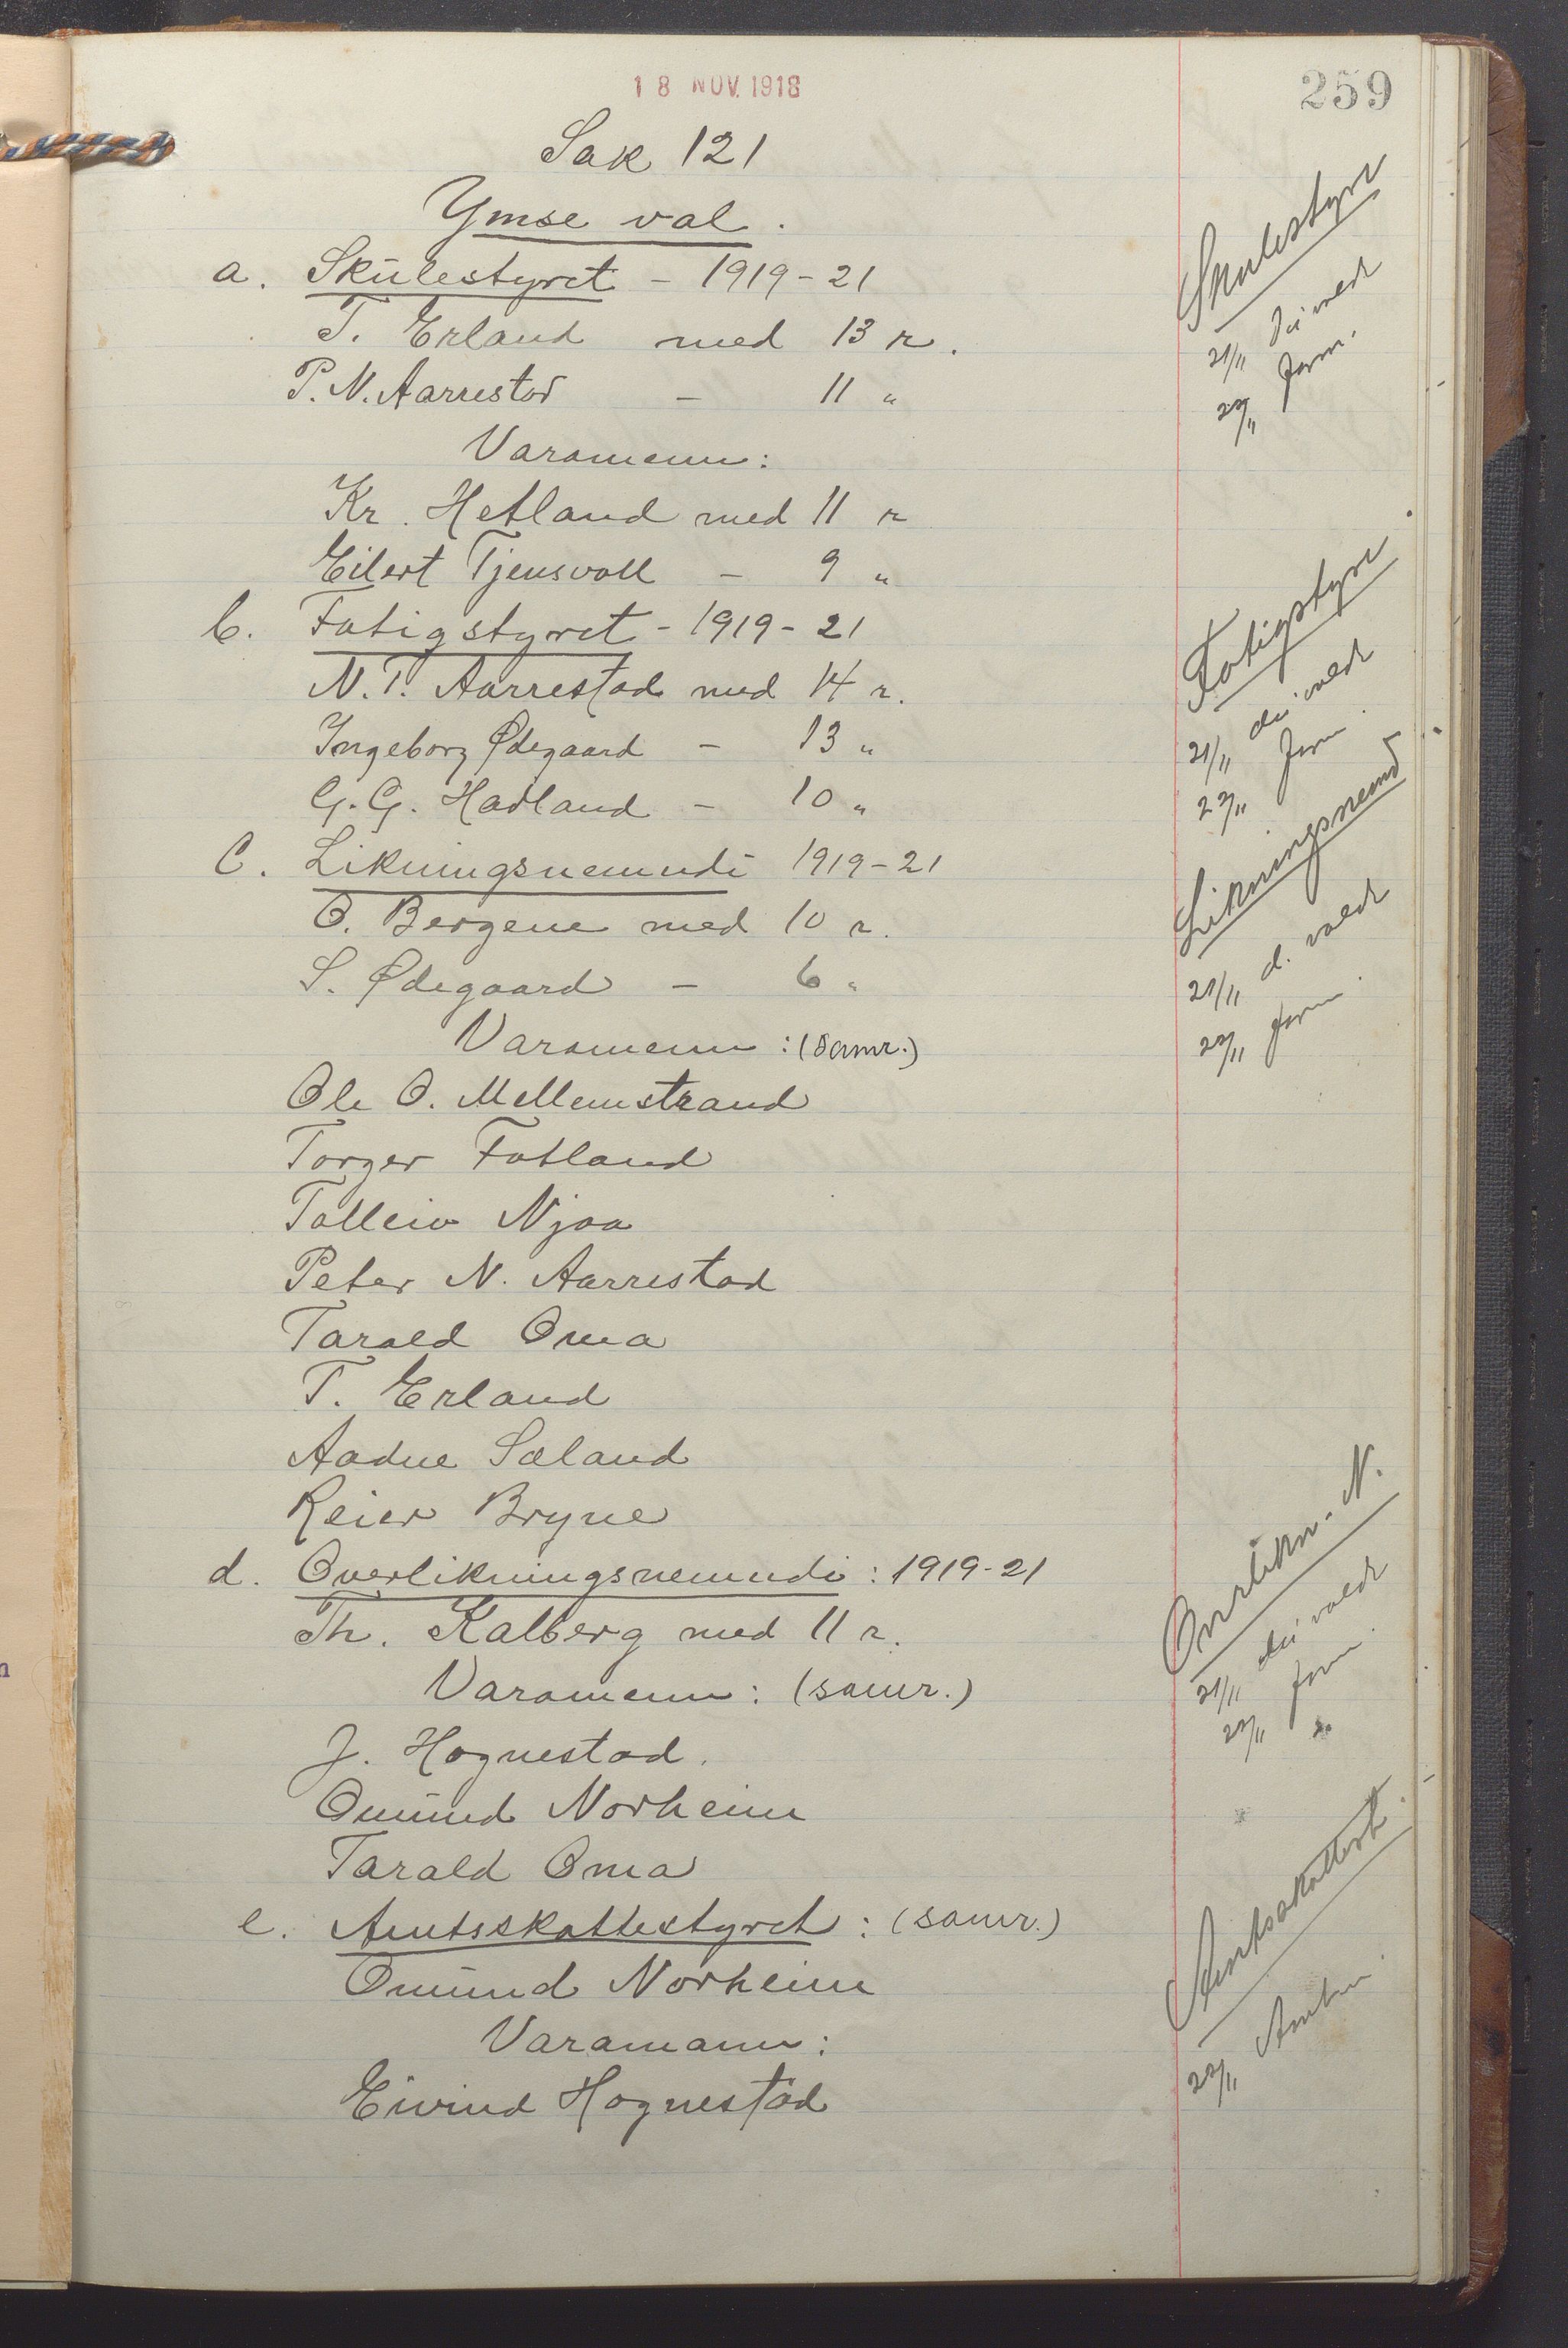 18 NOV. 1918
259
Sak 121
Ymse val.
a. Skulestyret - 1919-21
T. Erland med 13 r.
P. N. Aarrestad - 11 "
Varamenn:
Kr. Hetland med 11 r
Eilert Tjensvoll - 9 "
b. Fatigstyret - 1919-21
N. T. Aarrestad med 14 r.
Ingeborg Ødegaard - 13 "
G. G. Hadland - 10 "
C. Likningsnemndi 1919-21
O. Bergene med 10 r.
S. Ødegaard - 6 "
Varamenn: (samr.)
Ole O. Mellemstrand
Torger Fotland
Talleiv Njaa
Peter N. Aarrestad
Tarald Oma
T. Erland
Aadne Sæland
Reier Bryne
d. Overlikningsnemndi: 1919-21
Th. Kalberg med 11 r.
Varamenn: (samr.)
J. Hognestad.
Omund Norheim
Tarald Oma
e. Amtsskattestyret: (samr.)
Omund Norheim
Varamann:
Eivind Hognestad
Skulestyre
21/11 dei valde
22/11 form.
Fatigstyre
21/11 dei valde
22/11 form
Likningsnemd
21/11 d. valde
22/11 form
Overlikn. N.
21/11 dei valde
22/11 form
Amtsskattest.
22/11 Amtm